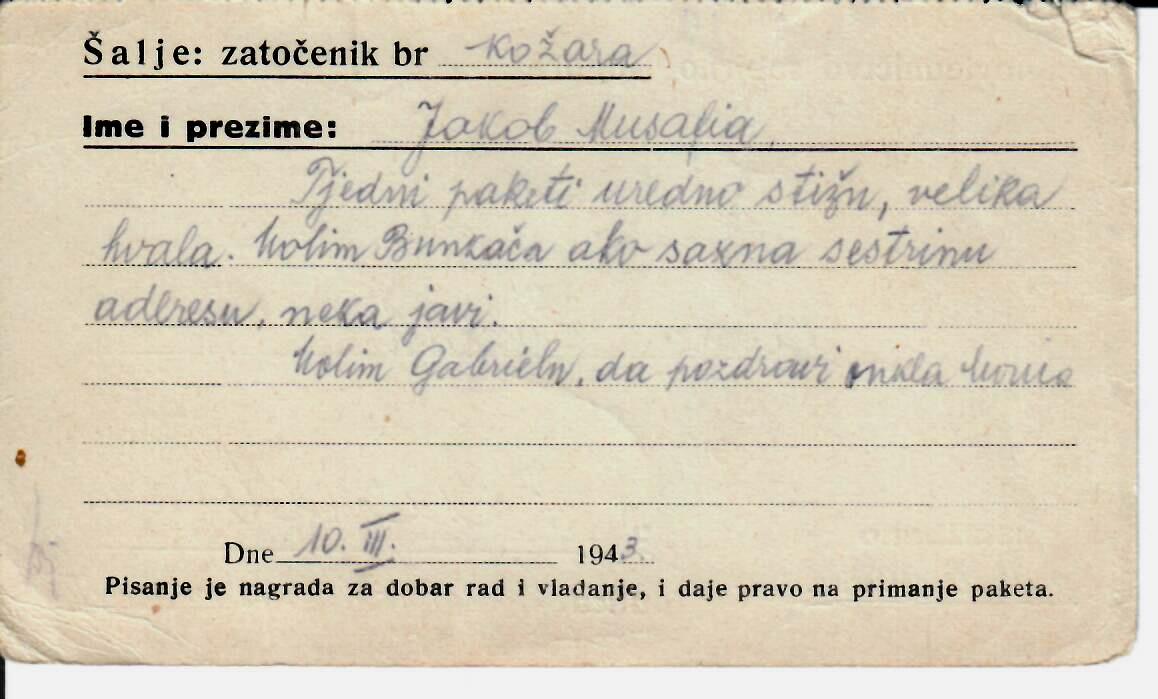 Šalje: zatočenik br kožara
Ime i prezime: Jakob Musafia,
Tjedni paketi uredno stižu, velika
hvala. Molim Bunkača ako sazna sestrinu
adresu, neka javi.
Molim Gabrielu, da pozdravi
Dne 10. III. 1943.
Pisanje je nagrada za dobar rad i vladanje, i daje pravo na primanje paketa.